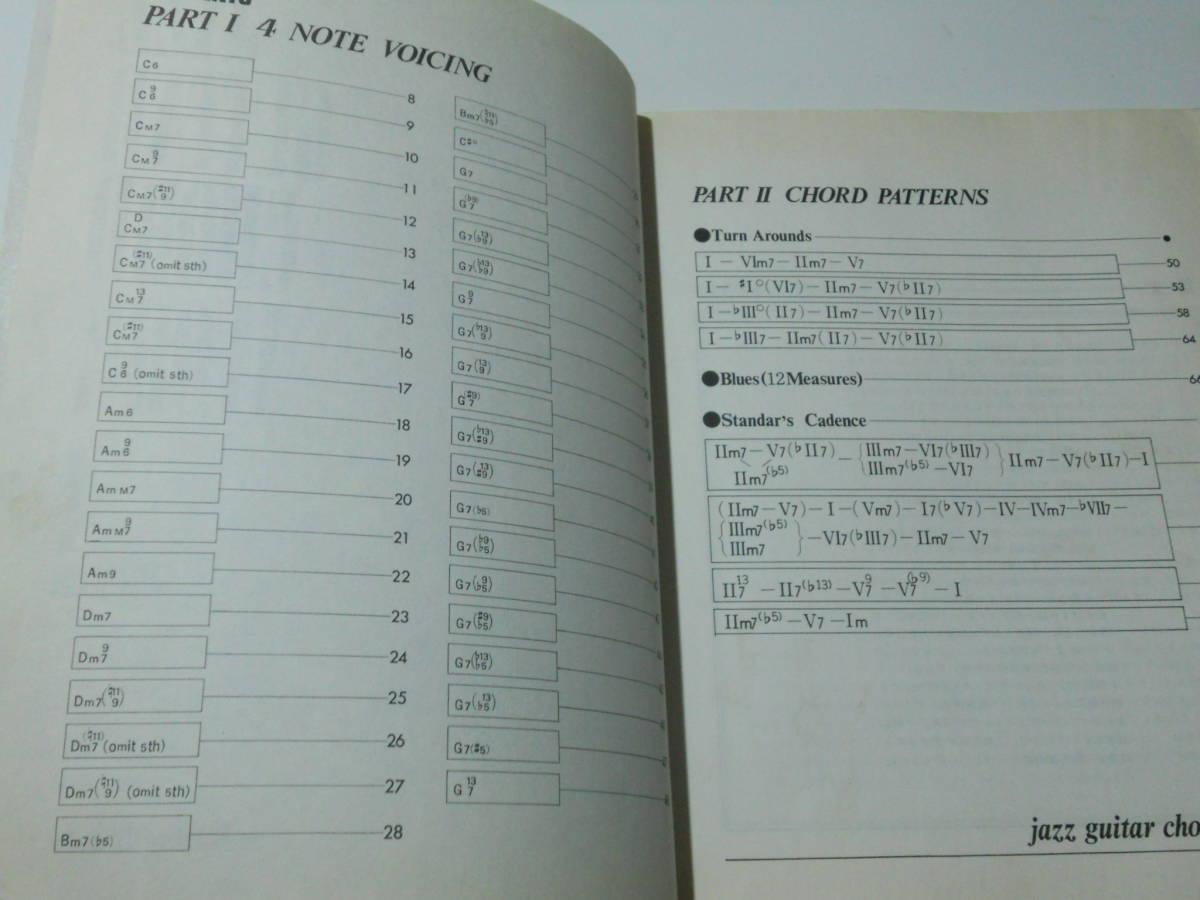 PART I 4 NOTE VOICING
C6 8
C 9 6 9
CM7 10
CM 9 7 11
CM7(♯11 9) 12
D CM7 13
CM7(♯11) (omit 5th) 14
CM7 13 15
CM7(♯11) 16
C 9 6 (omit 5th) 17
Am6 18
Am 9 6 19
AmM7 20
AmM7 9 21
Am9 22
Dm7 23
Dm7 9 24
Dm7(♯11 9) 25
Dm7(♯11) (omit 5th) 26
Dm7(♯11 9) (omit 5th) 27
Bm7(♭5) 28
Bm7(♯11 ♭5)
C♯°
G7
G7(♭9)
G7(13 ♭9)
G7(♭13 ♭9)
G 9 7
G7(♭13 9)
G7(13 9)
G7(♯9)
G7(♭13 ♯9)
G7(13 ♯9)
G7(♭5)
G7(♭9 ♭5)
G7(9 ♭5)
G7(♯9 ♭5)
G7(♭13 ♭5)
G7(13 ♭5)
G7(♯5)
G 13 7
PART II CHORD PATTERNS
●Turn Arounds
I − VIm7 − IIm7 − V7 50
I − ♯I°(VI7) − IIm7 − V7(♭II7) 53
I − ♭III°(II7) − IIm7 − V7(♭II7) 58
I − ♭III7 − IIm7(II7) − V7(♭II7) 64
●Blues(12Measures) 66
●Standar's Cadence
IIm7 − V7(♭II7) − {IIIm7 − VI7(♭III7)
IIm7(♭5) {IIIm7(♭5) − VI7 } IIm7 − V7(♭II7) − I
(IIm7 − V7) − I − (Vm7) − I7(♭V7) − IV − IVm7 − ♭VII7 −
{IIIm7(♭5)
IIIm7 } − VI7(♭III7) − IIm7 − V7
II7 13 − II7(♭13) − V7 9 − V7(♭9) − I
IIm7(♭5) − V7 − Im
jazz guitar cho